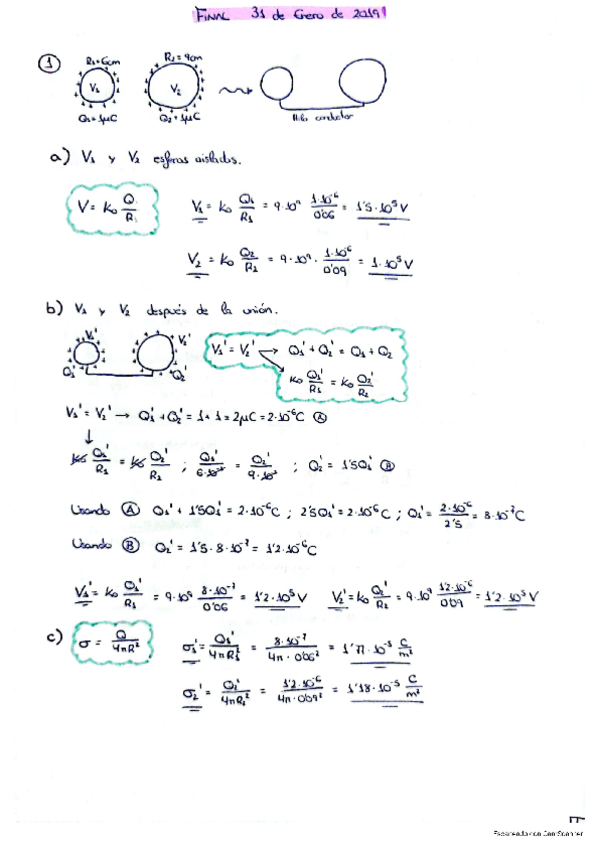 FINAL 31 de Enero de 2019
1
R1 = 6cm
R2 = 9cm
V1
V2
Q1 = 1μC
Q2 = 1μC
Hilo conductor
a) V1 y V2 esferas aisladas.
V = K0 Q/R
V1 = K0 Q1/R1 = 9·10⁹ 1·10⁻⁶/0'06 = 1'5·10⁵ V
V2 = K0 Q2/R2 = 9·10⁹ · 1·10⁻⁶/0'09 = 1·10⁵ V
b) V1 y V2 después de la unión.
V1' V2'
Q1' Q2'
V1' = V2' → Q1' + Q2' = Q1 + Q2
K0 Q1'/R1 = K0 Q2'/R2
V1' = V2' → Q1' + Q2' = 1 + 1 = 2μC = 2·10⁻⁶C Ⓐ
K0 Q1'/R1 = K0 Q2'/R2 ; Q1'/6·10⁻² = Q2'/9·10⁻² ; Q2' = 1'5Q1' Ⓑ
Usando Ⓐ Q1' + 1'5Q1' = 2·10⁻⁶C ; 2'5Q1' = 2·10⁻⁶C ; Q1' = 2·10⁻⁶/2'5 = 8·10⁻⁷C
Usando Ⓑ Q2' = 1'5 · 8·10⁻⁷ = 1'2·10⁻⁶C
V1' = K0 Q1'/R1 = 9·10⁹ 8·10⁻⁷/0'06 = 1'2·10⁵ V V2' = K0 Q2'/R2 = 9·10⁹ 1'2·10⁻⁶/0'09 = 1'2·10⁵ V
c) σ = Q/4πR²
σ1' = Q1'/4πR1² = 8·10⁻⁷/4π·0'06² = 1'77·10⁻⁵ C/m²
σ2' = Q2'/4πR2² = 1'2·10⁻⁶/4π·0'09² = 1'18·10⁻⁵ C/m²
Escaneado con CamScanner